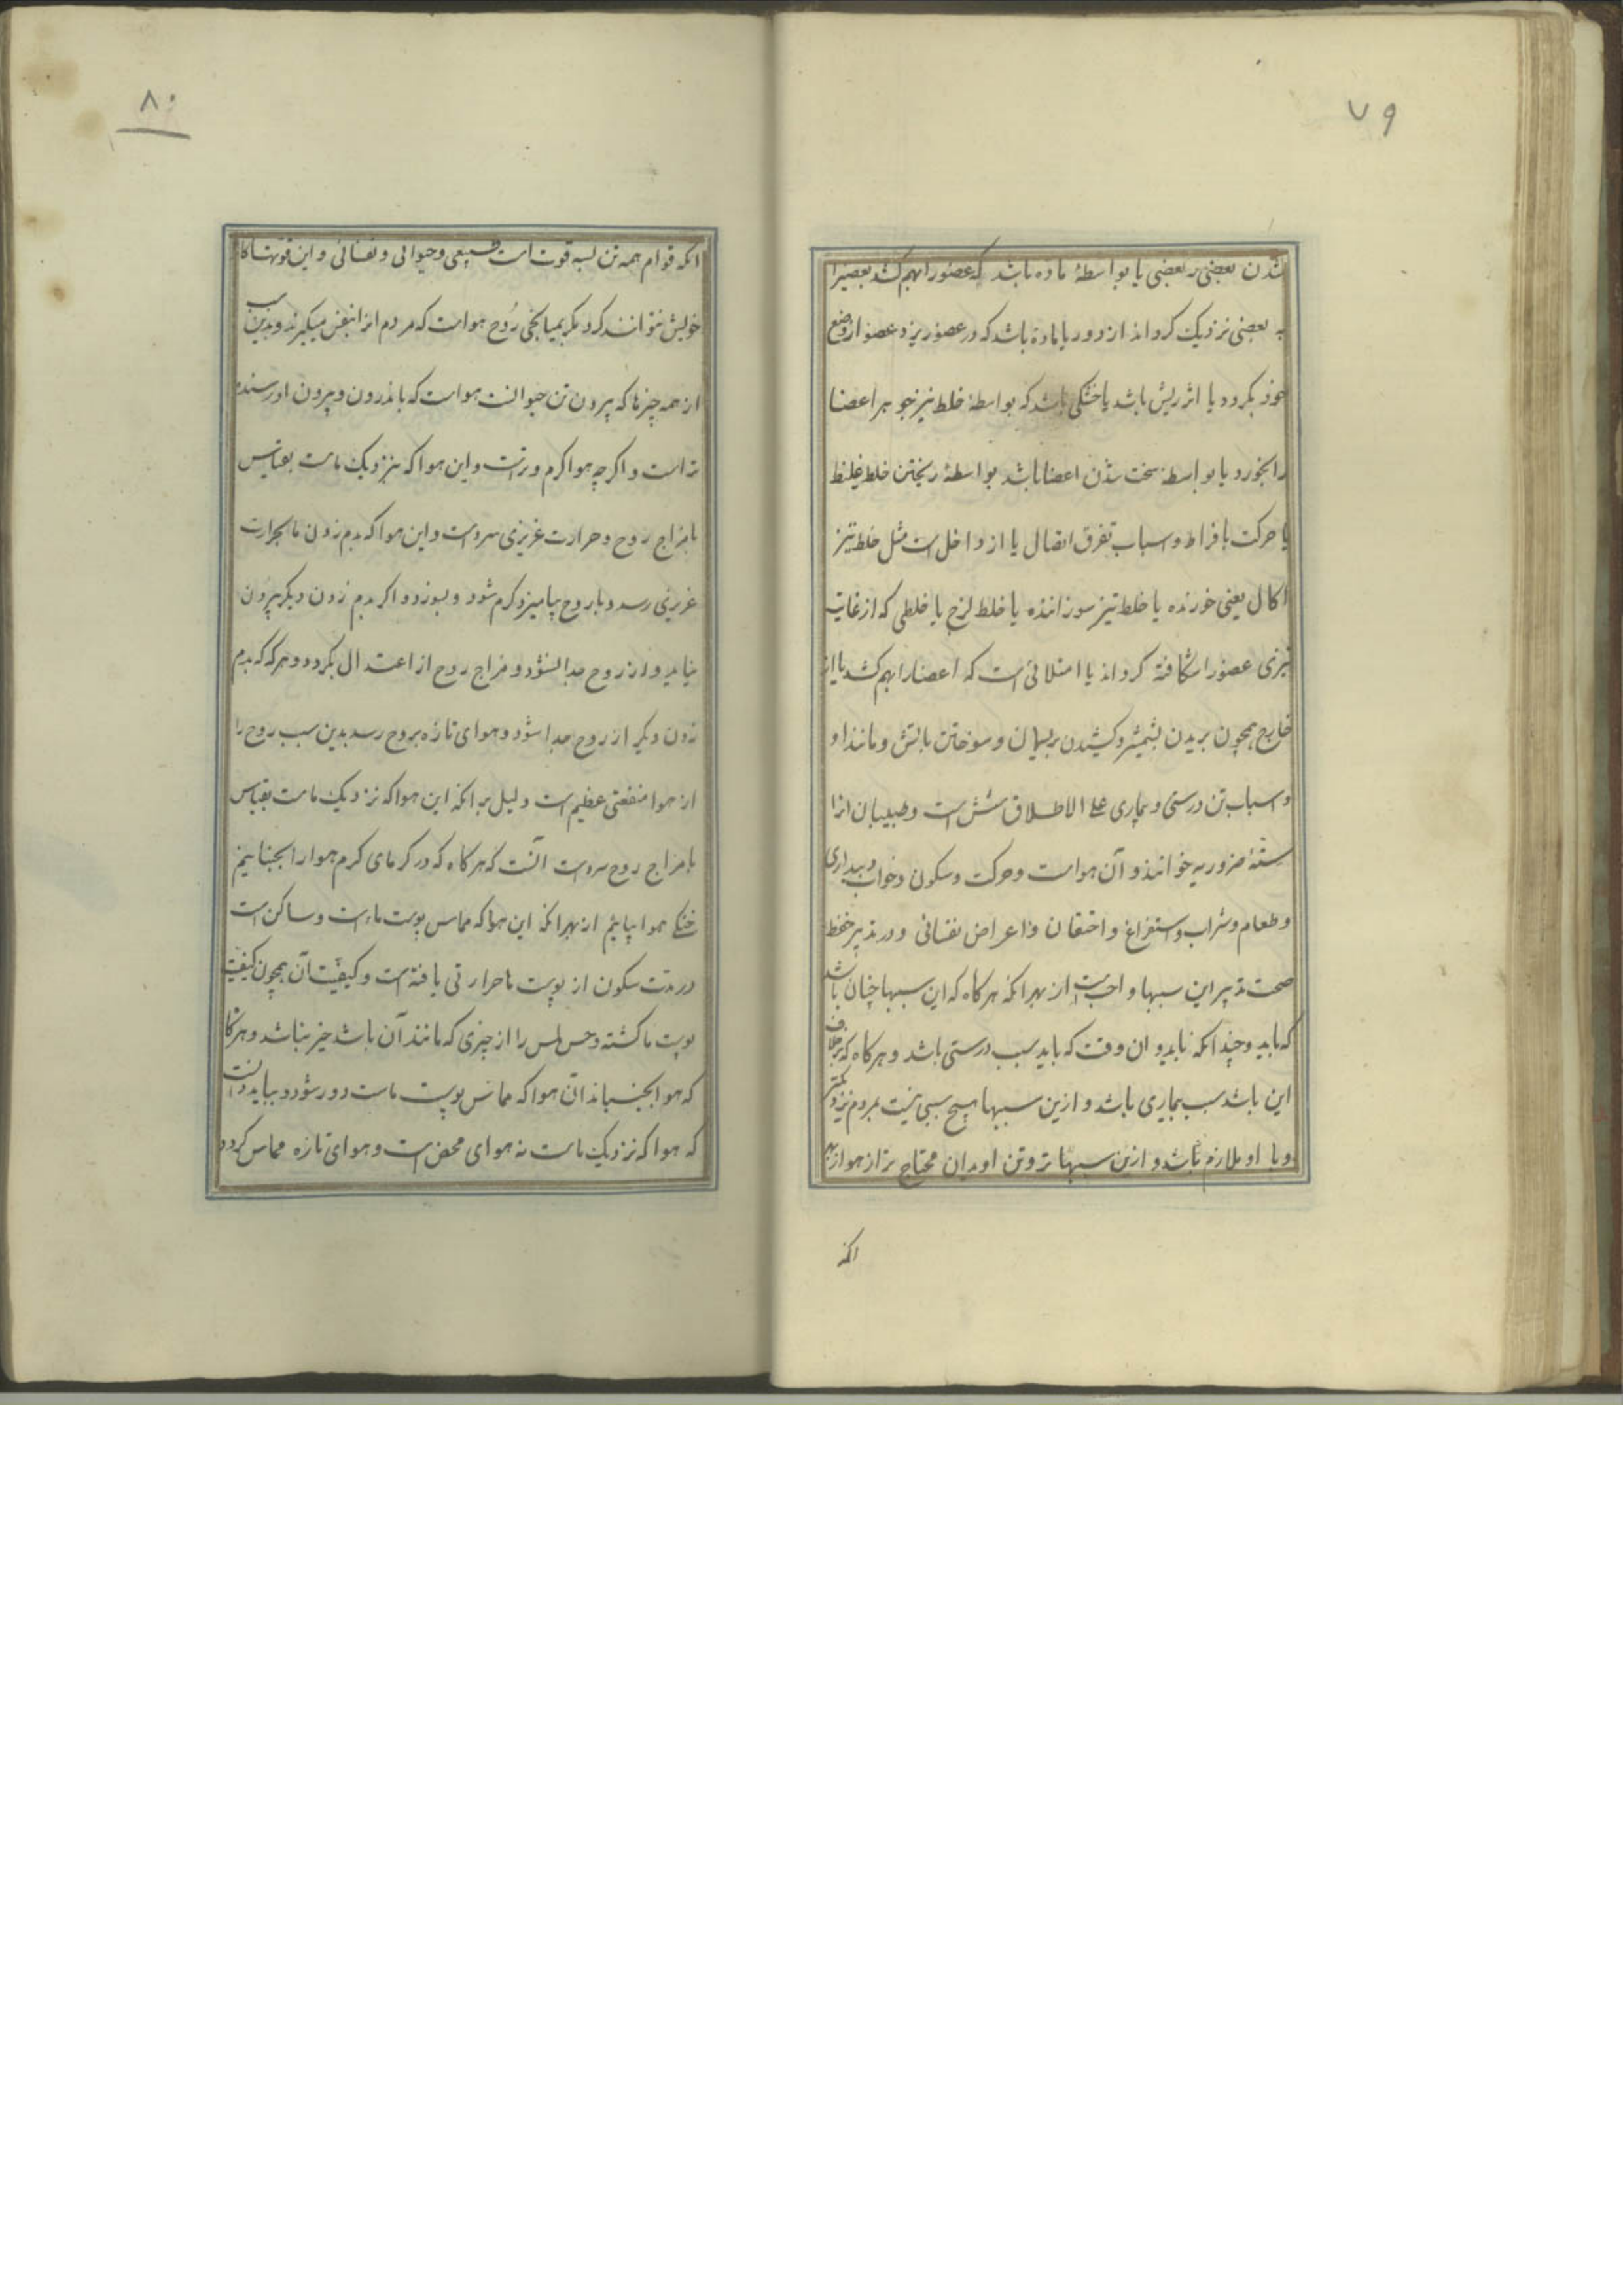 ۷۹
شدن بعضی ر بعضی یا بواسطهٔ ماده باشد که عضو را بهم کشد بعضیرا
به بعضی نزدیک کرداند از دور یا ماده باشد که در عضو ریزد و عضو از وضع
خود بکردد یا اثر ریش باشد یا خشکی باشد که بواسطهٔ خلط تیز جوهر اعضا
را بخورد یا بواسطهٔ سخت شدن اعضا باشد بواسطهٔ ریختن خلط غلیظ
یا حرکت بافراط و اسباب تفرق اتصال یا از داخل است مثل خلط تیز
اکال یعنی خورنده یا خلط تیز سوزاننده یا خلط لزج یا خلطی که از غایت
تیزی عضو را شکافته کرداند یا امتلائی است که اعضا را بهم کشد یا از
خارج همچون بریدن بشمشیر و کشیدن بریسمان و سوختن باتش و مانند او
و اسباب تن درستی و بیماری علی الاطلاق شش است و طبیبان انرا
ستهٔ ضروریه خوانند و آن هواست و حرکت و سکون و خواب و بیداری
و طعام و شراب و استفراغ و احتقان و اعراض نفسانی و در تدبیر حفظ
صحت تدبیر این سببها واجبست از بهر انکه هر کاه که این سببها چنان باشد
که باید و چندانکه باید و ان وقت که باید سبب درستی باشد و هر کاه که برخلاف
این باشد سبب بیماری باشد و ازین سببها هیچ سببی نیست بمردم نزدیکتر
و با او ملازم باشد و ازین سببها تر و تن او بدان محتاج تر از هوا از بهر
انکه
۸۰
انکه قوام همه تن بسه قوت است طبیعی و حیوانی و نفسانی و این قوتها کار
خویش نتوانند کرد مکر بمیانجی رُوح هواست که مردم انرا بنفس میکیرند و بدین سبب
از همه چیزها که بیرون تن حیوانست هواست که باندرون و بیرون او رسنده
تر است و اکر چه هوا کرم و ترست و این هوا که بنزدیک ماست بقیاس
با مزاج روح و حرارت غریزی سردست و این هوا که بدم زدن ما بحرارت
غریزی رسد و با روح بیامیزد کرم شود و بسوزد و اکر بدم زدن دیکر بیرون
نیاید و از روح جدا نشود و مزاج روح از اعتدال بکردد و هر که که بدم
زدن دیکر از روح جدا شود و هوای تازه بروح رسد بدین سبب روح را
از هوا منفعتی عظیم است و دلیل بر انکه این هوا که نزدیک ماست بقیاس
با مزاج روح سردست آنست که هر کاه که در کرمای کرم هوا را بجنبانیم
خنکی هوا بیابیم از بهر انکه این هوا که مماس پوست ماست و ساکن است
در مدت سکون از پوست ما حرارتی یافته است و کیفیت آن همچون کیفیت
پوست ما کشته و حس لمس را از چیزی که مانند آن باشد خبر نباشد و هر کاه
که هوا بجنبانند آن هوا که مماس پوست ماست دور شود و بباید دانست
که هوا که نزدیک ماست نه هوای محض است و هوای تازه مماس کردد